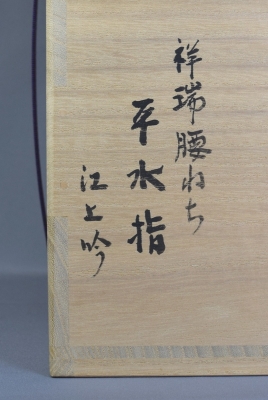 祥瑞腰ねぢ
平水指
江上吟